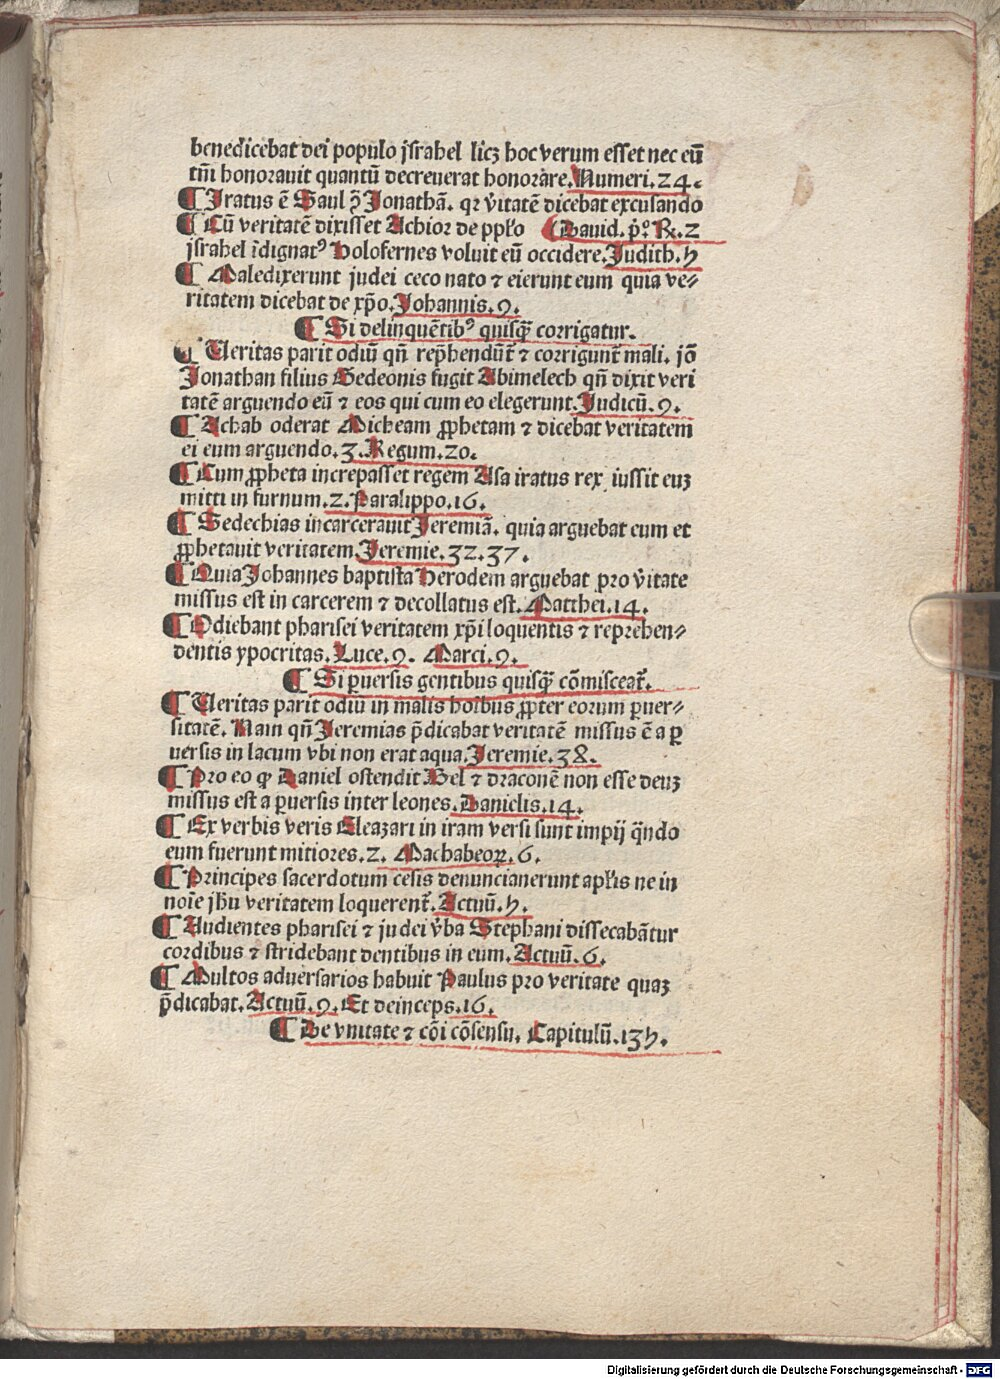 benedicebat dei populo jsrahel licꝫ hoc verum esset nec eū
tm̄ honorauit quantū decreuerat honorare. Numeri. 24.
¶ Iratus ē Saul ꝯ̄ Jonathā. qꝛ v̄itatē dicebat excusando
¶ Cū veritatē dixisset Achior de ppl̄o (Dauid. p̄º R. 2
jsrahel īdignatꝰ Holofernes voluit eū occidere. Judith. 5
¶ Maledixerunt judei ceco nato ⁊ eierunt eum quia ve⸗
ritatem dicebat de xp̄o. Johannis. 9.
¶ Si delinquētibꝰ quisq̄ȝ corrigatur.
¶ Ueritas parit odiū qn̄ rep̄hendūt̄ ⁊ corrigunt̄ mali. jō
Jonathan filius Gedeonis fugit Abimelech qn̄ dixit veri
tatē arguendo eū ⁊ eos qui cum eo elegerunt. Judicū. 9.
¶ Achab oderat Micheam ꝓphetam ⁊ dicebat veritatem
ei eum arguendo. 3. Regum. 20.
¶ Cum ꝓpheta increpasset regem Asa iratus rex iussit euꝫ
mitti in furnum. 2. Paralippo. 16.
¶ Sedechias incarcerauit Jeremiā. quia arguebat eum et
ꝓphetauit veritatem Jeremie. 32. 37.
¶ Quia Johannes baptista Herodem arguebat pro v̄itate
missus est in carcerem ⁊ decollatus est. Matthei. 14.
¶ Odiebant pharisei veritatem xp̄i loquentis ⁊ reprehen⸗
dentis ypocritas. Luce. 9. Marci. 9.
¶ Si ꝑuersis gentibus quisq̄ȝ cōmisceat̄.
¶ Ueritas parit odiū in malis hoībus ꝓpter eorum ꝑuer⸗
sitatē. Nam qn̄ Jeremias p̄dicabat veritatē missus ē a ꝑ
uersis in lacum vbi non erat aqua. Jeremie. 38.
¶ Pro eo ꝙ Daniel ostendit Bel ⁊ draconē non esse deuꝫ
missus est a ꝑuersis inter leones. Danielis. 14.
¶ Ex verbis veris Eleazari in iram versi sunt impij q̄ndo
eum fuerunt mitiores. 2. Machabeoꝝ. 6.
¶ Principes sacerdotum cesis denuncianerunt apl̄is ne in
noīe jh̄u veritatem loquerent̄. Actuū. 5.
¶ Audientes pharisei ⁊ judei v̄ba Stephani dissecabātur
cordibus ⁊ stridebant dentibus in eum. Actuū. 6.
¶ Multos aduersarios habuit Paulus pro veritate quaꝫ
p̄dicabat. Actuū. 9. Et deinceps. 16.
¶ De vnitate ⁊ cōi cōsensu. Capitulū. 135.
Digitalisierung gefördert durch die Deutsche Forschungsgemeinschaft - DFG